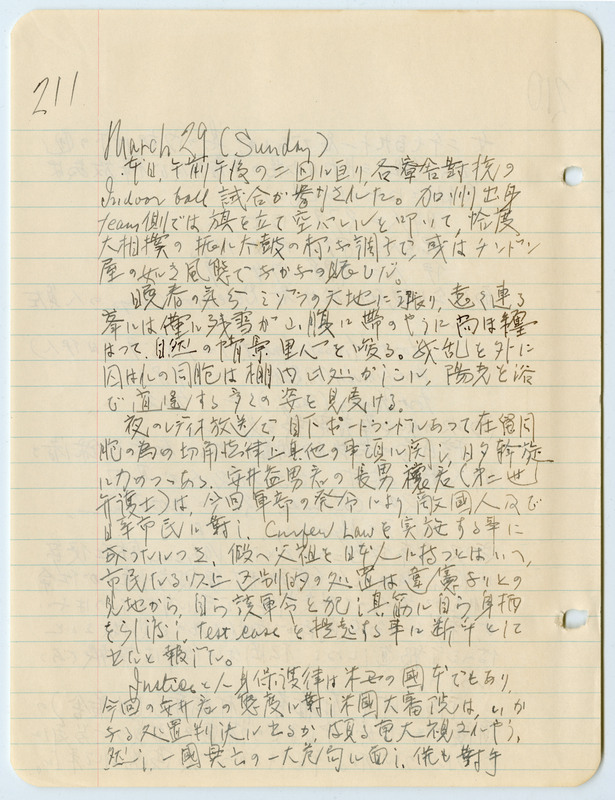 211
March 29 (Sunday)
本日、午前午後の二回に亘り、各寮舎對抗の
Indoor ball 試合が擧行された。加州出身
team側では旗を立て空バレルを叩いて、恰度
大相撲の振れ太鼓の様な調子で、或はチンドン
屋の如き風態でなかなかの賑しだ。
晩春の気分、ミゾラの天地に漲り、遠く連る
峯には僅に残雪が山腹に帯のやうに尚ほ纏
はって、自然の背景 里人 を唆る。戦乱を外に
囚はれの同胞は棚内 此処かしこに、陽光を浴
び、逍遥する多くの姿を見受ける。
夜のレディオ放送で、目下ポートランドにあって在留同
胞の為め切角法律上其他の事項に関し、日夕幹旋
に力めつつある、安井益男君の長男 穰君(第二世
弁護士)は、今回軍部の発令により敵國人及び
日系市民に對し Curfew Law を実施する事に
なったにつき、假へ父祖を日本人に持つとはいへ、
市民たる以上 区別的の処置は違憲なりとの
見地から、自ら該軍令を犯し其筋に自ら身柄
を引渡し、test case を提起する事に断乎として
立たと報じた。
Justice と人身保護律は米国の國本でもあり、
今回の安井君の態度に對し米國大審院は、いか
なる処置判決に出るか、頗る重大視されやう。
然し、一國興亡の一大危局に面し、併も對手